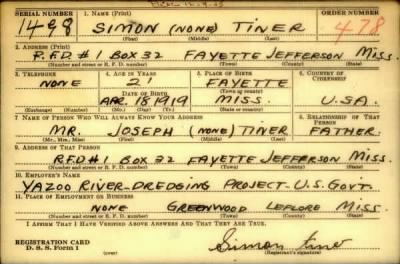 SERIAL NUMBER 1. NAME (Print) ORDER NUMBER
1498 SIMON (NONE) TINER 478
(First) (Middle) (Last)
2. ADDRESS (Print)
R.F.D #1 BOX 32 FAYETTE JEFFERSON MISS.
(Number and street or R. F. D. number) (Town) (County) (State)
3. TELEPHONE 4. AGE IN YEARS 5. PLACE OF BIRTH 6. COUNTRY OF CITIZENSHIP
NONE 21 FAYETTE
DATE OF BIRTH (Town or county)
APR. 18 1919 MISS. U.S.A.
(Exchange) (Number) (Mo.) (Day) (Yr.) (State or country)
7. NAME OF PERSON WHO WILL ALWAYS KNOW YOUR ADDRESS 8. RELATIONSHIP OF THAT PERSON
MR. JOSEPH (NONE) TINER FATHER.
(Mr., Mrs., Miss) (First) (Middle) (Last)
9. ADDRESS OF THAT PERSON
RFD#1 BOX 32 FAYETTE JEFFERSON MISS.
(Number and street or R. F. D. number) (Town) (County) (State)
10. EMPLOYER'S NAME
YAZOO RIVER-DREDGING PROJECT-U.S. GOVT.
11. PLACE OF EMPLOYMENT OR BUSINESS
NONE GREENWOOD LEFLORE MISS.
(Number and street or R. F. D. number) (Town) (County) (State)
I AFFIRM THAT I HAVE VERIFIED ABOVE ANSWERS AND THAT THEY ARE TRUE.
REGISTRATION CARD
D. S. S. Form 1 (over) Simon Tiner
(Registrant's signature)